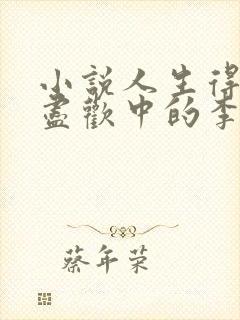 小說人生得
盡歡中的李
蔡年荣